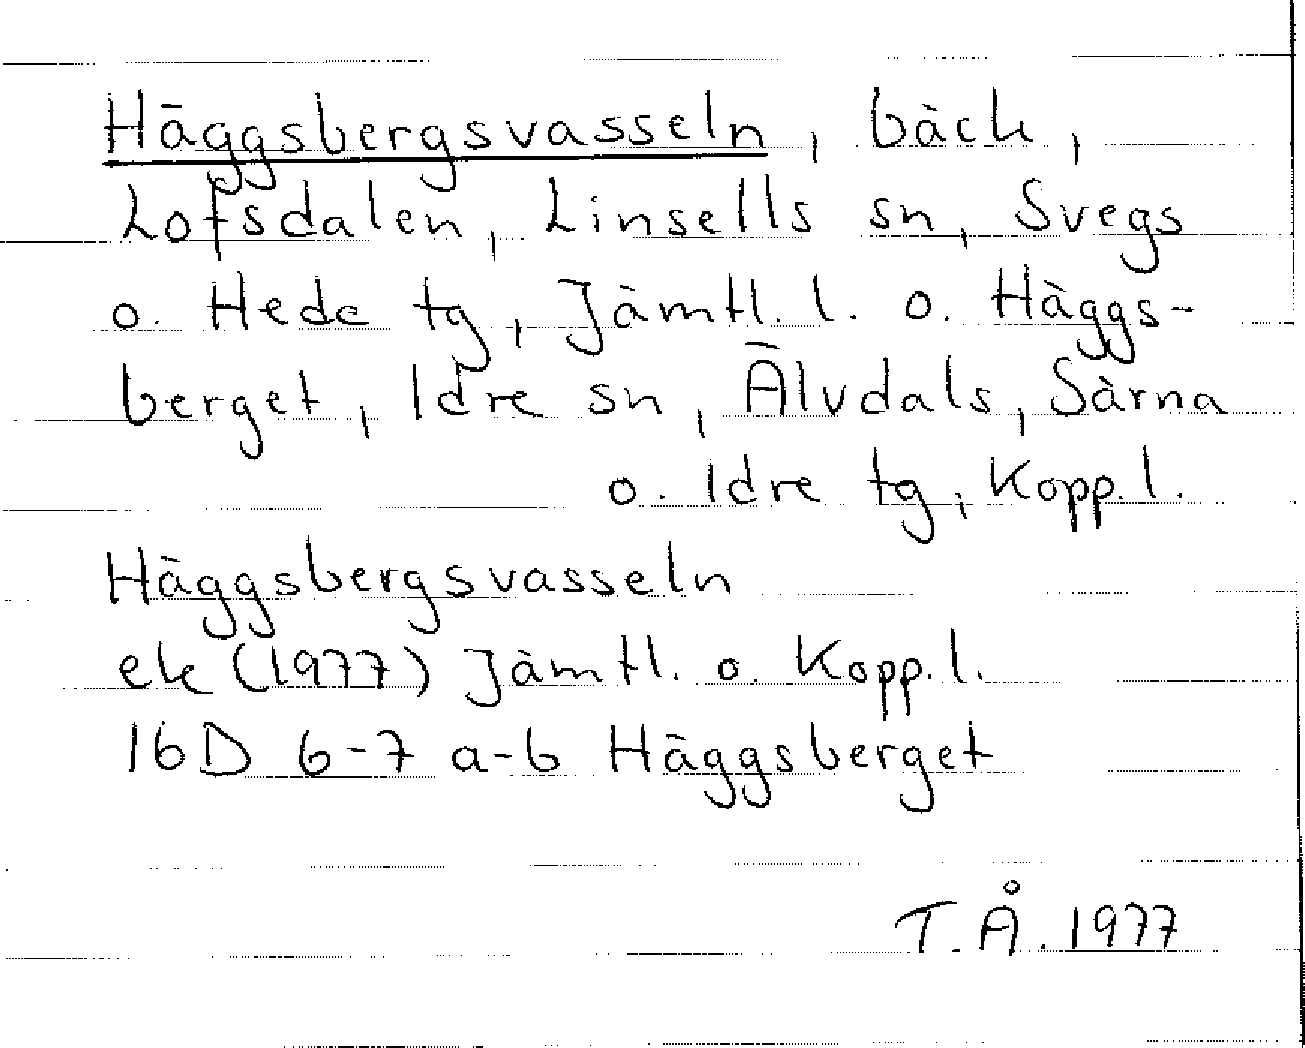 Häggsbergsvasseln, bäck,
Lofsdalen, Linsells sn, Svegs
o. Hede tg, Jämtl. l. o. Häggs-
berget, Idre sn, Älvdals, Särna
o. Idre tg, Kopp. l.
Häggsbergsvasseln
ek (1977) Jämtl. o. Kopp. l.
16D 6-7 a-b Häggsberget
T. Å. 1977